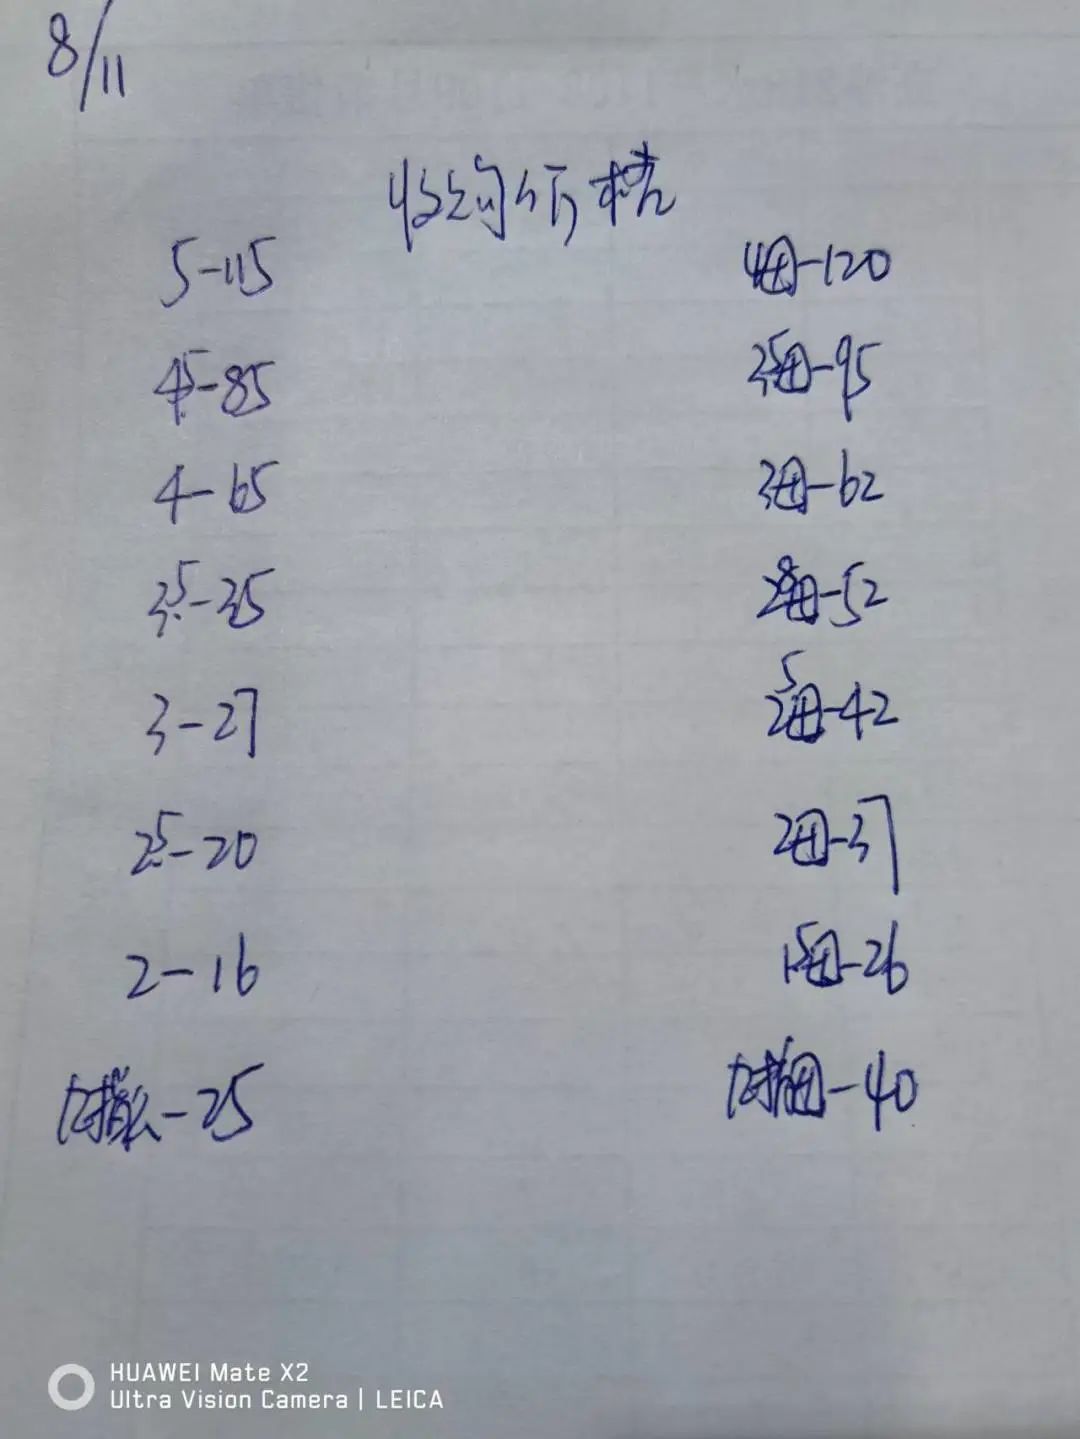 8/11
收购价格
5-115
4母-120
4.5-85
3.5母-95
4-65
3母-62
3.5-35
2.8母-52
3-27
2.5母-42
2.5-20
2母-37
2-16
1.5母-26
-25
母-40
HUAWEI Mate X2
Ultra Vision Camera | LEICA